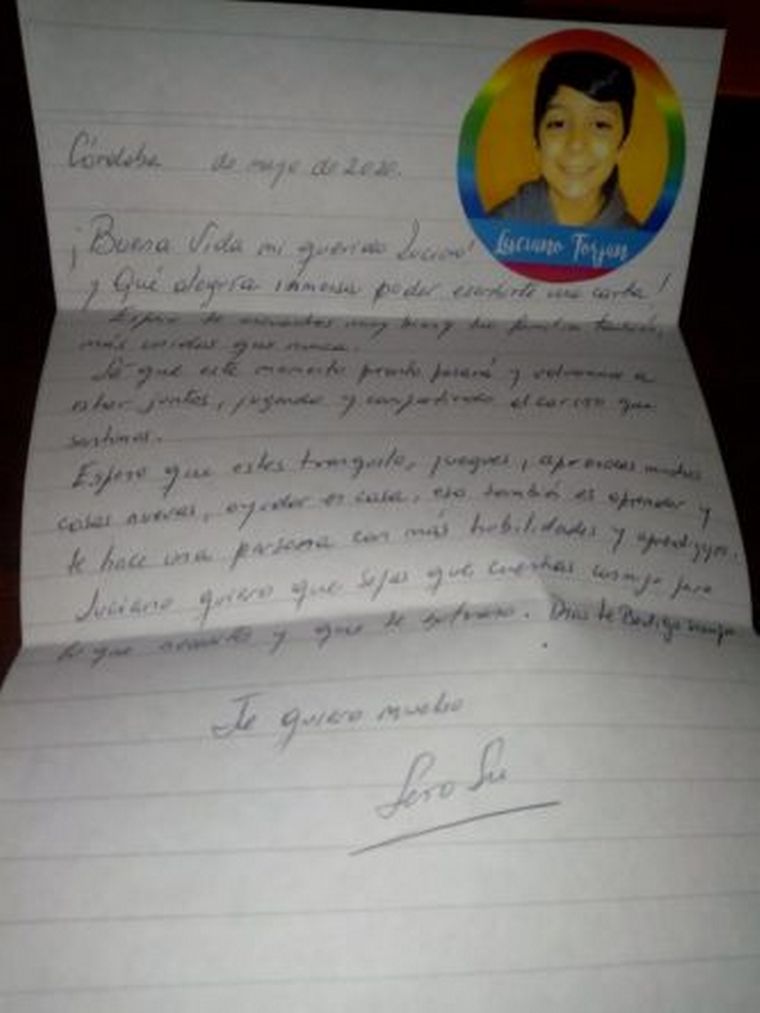 Córdoba de mayo de 2020.
Luciano Torjan
¡Buena Vida mi querido Luciano!
y Qué alegría inmensa poder escribirte una carta!
Espero te encuentres muy bien y tu familia también,
más unidos que nunca.
Sé que este momento pronto pasará y volveremos a
estar juntos, jugando y compartiendo el cariño que
sentimos.
Espero que estes tranquilo, juegues, aprendas muchas
cosas nuevas, ayudar en casa, eso también es aprender y
te hace una persona con más habilidades y aprendizajes.
Luciano quiero que sepas que cuentas conmigo para
lo que necesites y que te extraño. Dios te Bendiga
Te quiero mucho